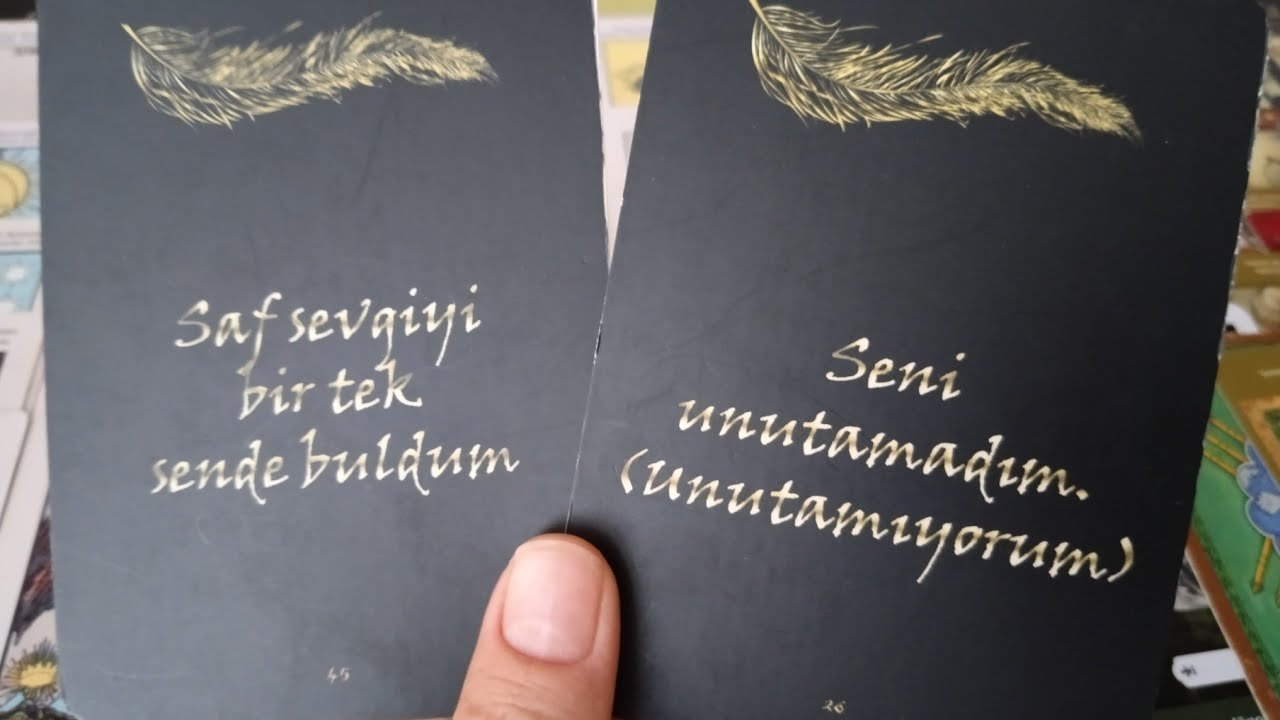 Saf sevgiyi
bir tek
sende buldum
45
Seni
unutamadım.
(Unutamıyorum)
26